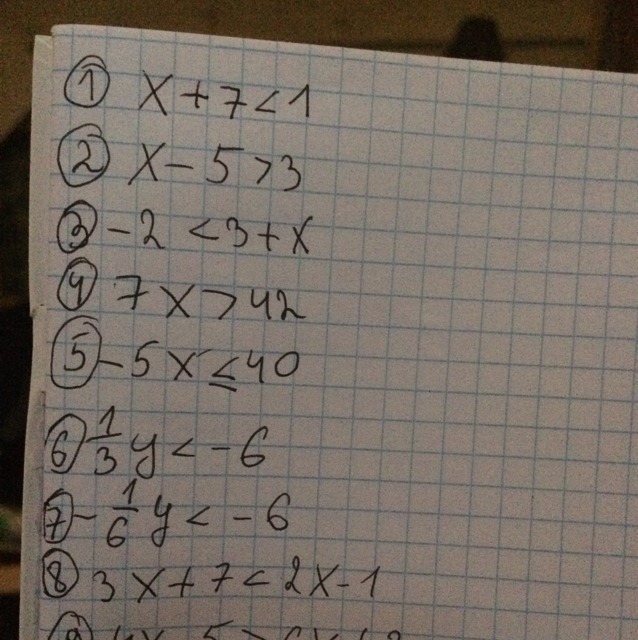 ① x + 7 < 1
② x - 5 > 3
③ - 2 < 3 + x
④ 7x > 42
⑤ - 5x ≤ 40
⑥ 1/3 y < - 6
⑦ - 1/6 y < - 6
⑧ 3x + 7 < 2x - 1